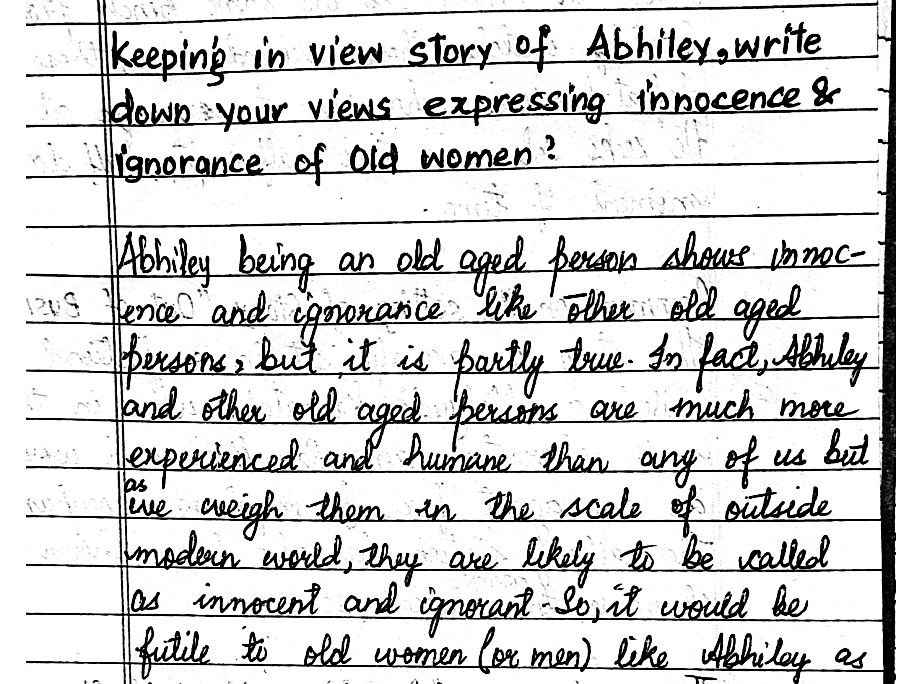 Keeping in view story of Abhiley, write
down your views expressing innocence &
ignorance of Old women?
Abhiley being an old aged person shows innoc-
ence and ignorance like other old aged
persons, but it is partly true. In fact, Abhiley
and other old aged persons are much more
experienced and humane than any of us but
as
we weigh them in the scale of outside
modern world, they are likely to be called
as innocent and ignorant. So, it would be
futile to old women (or men) like Abhiley as